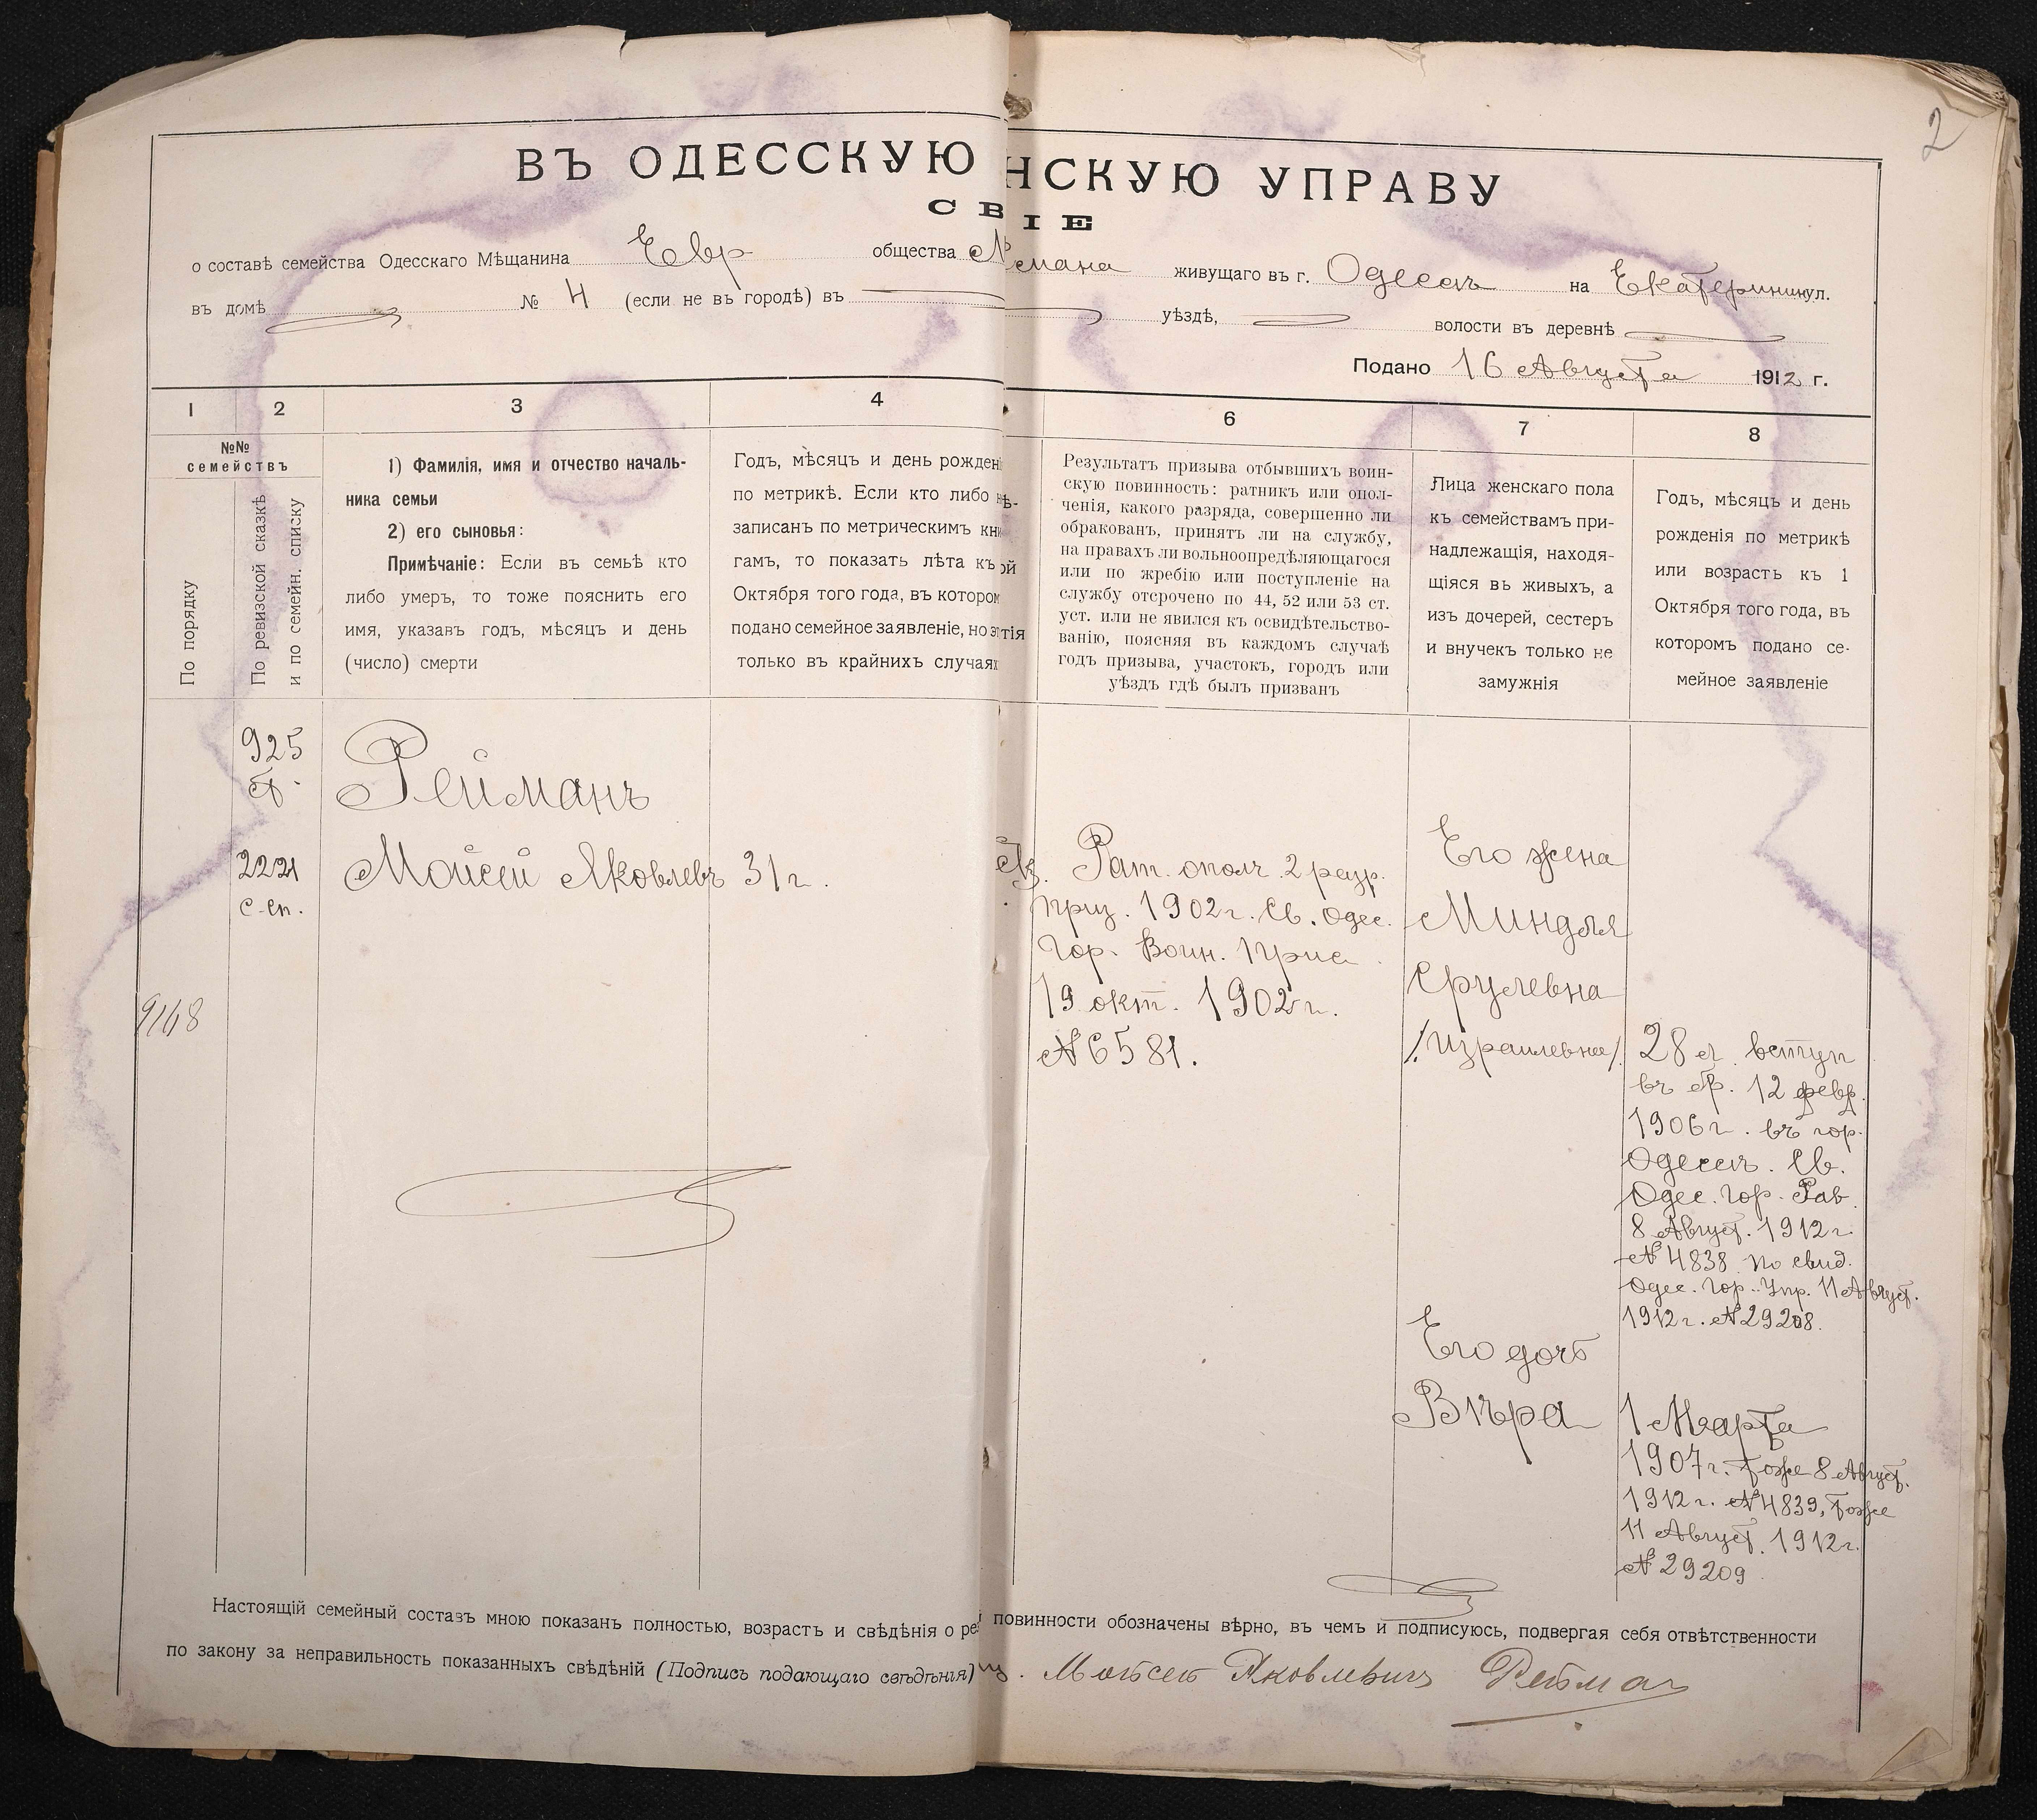 2
ВЪ ОДЕССКУЮ НСКУЮ УПРАВУ
СВ IЕ
о составѣ семейства Одесскаго Мѣщанина Евр общества мана живущаго въ г. Одессѣ на Екатеринин ул.
въ домѣ № 4 (если не въ городѣ) въ уѣздѣ, волости въ деревнѣ
Подано 16 Августа 1912 г.
1 2 3 4 6 7 8
№№
семействъ
По порядку
По ревизской сказкѣ
и по семейн. списку
1) Фамилія, имя и отчество началь-
ника семьи
2) его сыновья:
Примѣчаніе: Если въ семьѣ кто
либо умеръ, то тоже пояснить его
имя, указавъ годъ, мѣсяцъ и день
(число) смерти
Годъ, мѣсяцъ и день рожден
по метрикѣ. Если кто либо
записанъ по метрическимъ кни
гамъ, то показать лѣта къ
Октября того года, въ котором
подано семейное заявленіе, но э
только въ крайнихъ случаях
ѣ-
ой
тія
Результатъ призыва отбывшихъ воин-
скую повинность: ратникъ или опол-
ченія, какого разряда, совершенно ли
обракованъ, принятъ ли на службу,
на правахъ ли вольноопредѣляющагося
или по жребію или поступленіе на
службу отсрочено по 44, 52 или 53 ст.
уст. или не явился къ освидѣтельство-
ванію, поясняя въ каждомъ случаѣ
годъ призыва, участокъ, городъ или
уѣздъ гдѣ былъ призванъ
Лица женскаго пола
къ семействамъ при-
надлежащія, находя-
щіяся въ живыхъ, а
изъ дочерей, сестеръ
и внучекъ только не
замужнія
Годъ, мѣсяцъ и день
рожденія по метрикѣ
или возрастъ къ 1
Октября того года, въ
которомъ подано се-
мейное заявленіе
925
Рейманъ
2221
с-сп.
Мойсей Яковлевъ 31 г.
9148
Рат. ополч. 2 разр.
приз. 1902 г. Св. Одес.
Гор. Воин. Прис.
19 окт. 1902 г.
№ 6581.
Его жена
Миндля
Срулевна
/Израилевна/
28 л. вступ
въ бр. 12 февр.
1906 г. въ гор.
Одессѣ. Св.
Одес. Гор. Рав.
8 Август. 1912 г.
№ 4838 по свид.
Одес. Гор. Упр. 11 Август.
1912 г. № 29208.
Его дочь
Вѣра
1 Марта
1907 г. тоже 8 Август.
1912 г. № 4839, тоже
11 Август. 1912 г.
№ 29209
Настоящій семейный составъ мною показанъ полностью, возрастъ и свѣдѣнія о ре повинности обозначены вѣрно, въ чемъ и подписуюсь, подвергая себя отвѣтственности
по закону за неправильность показанныхъ свѣдѣній (Подпись подающаго свѣдѣнія) Мойсей Яковлевичъ Рейман